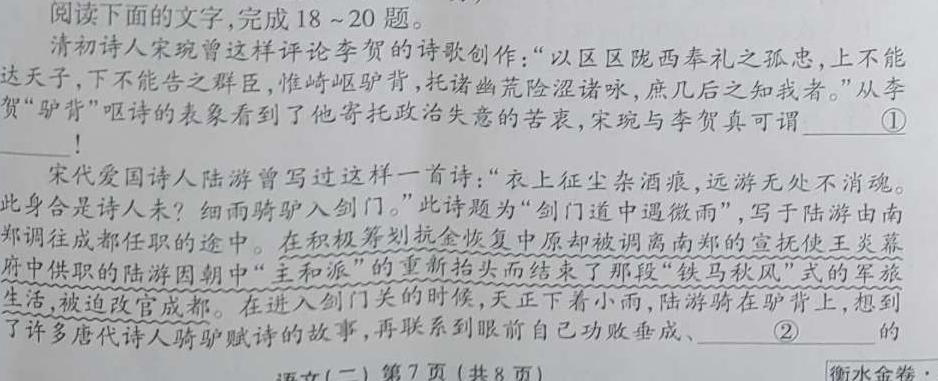 阅读下面的文字,完成 18 ~ 20 题。
清初诗人宋琬曾这样评论李贺的诗歌创作:“以区区陇西奉礼之孤忠,上不能
达天子,下不能告之群臣,惟崎岖驴背,托诸幽荒险涩诸咏,庶几后之知我者。”从李
贺“驴背”呕诗的表象看到了他寄托政治失意的苦衷,宋琬与李贺真可谓______①
______!
宋代爱国诗人陆游曾写过这样一首诗:“衣上征尘杂酒痕,远游无处不消魂。
此身合是诗人未?细雨骑驴入剑门。”此诗题为“剑门道中遇微雨”,写于陆游由南
郑调往成都任职的途中。在积极筹划抗金恢复中原却被调离南郑的宣抚使王炎幕
府中供职的陆游因朝中“主和派”的重新抬头而结束了那段“铁马秋风”式的军旅
生活,被迫改官成都。在进入剑门关的时候,天正下着小雨,陆游骑在驴背上,想到
了许多唐代诗人骑驴赋诗的故事,再联系到眼前自己功败垂成、______②______的
语文(二) 第 7 页(共 8 页)
衡水金卷·